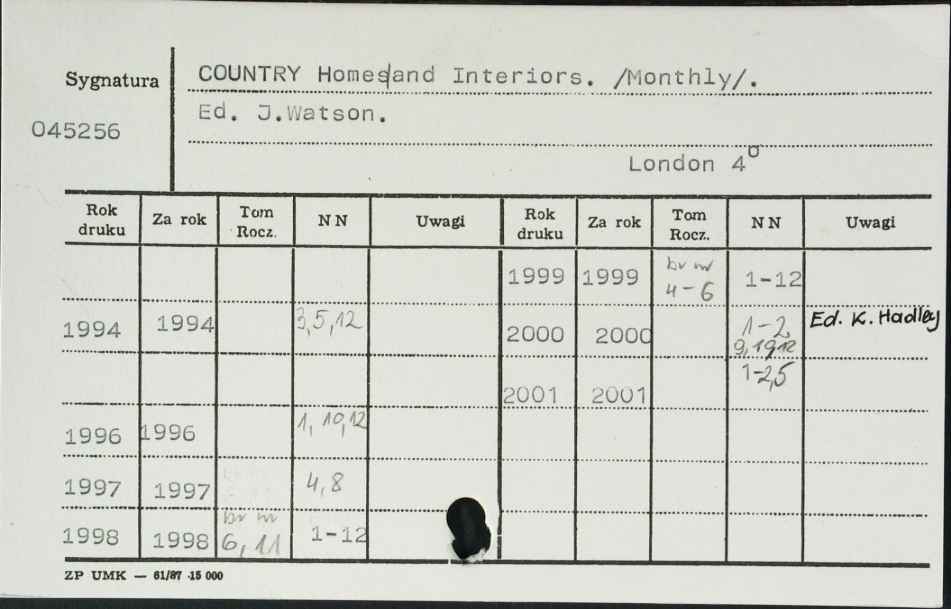 Sygnatura
COUNTRY Homes and Interiors. /Monthly/.
045256
Ed. J.Watson.
London 4°
Rok druku Za rok Tom Rocz. NN Uwagi Rok druku Za rok Tom Rocz. NN Uwagi
1999 1999 br nr 4-6 1-12
1994 1994 3,5,12 2000 2000 1-2, 9,1912 Ed. K. Hadley
2001 2001 1-2,5
1996 1996 1, 10,12
1997 1997 4,8
1998 1998 br nr 6,11 1-12
ZP UMK — 61/87 15 000